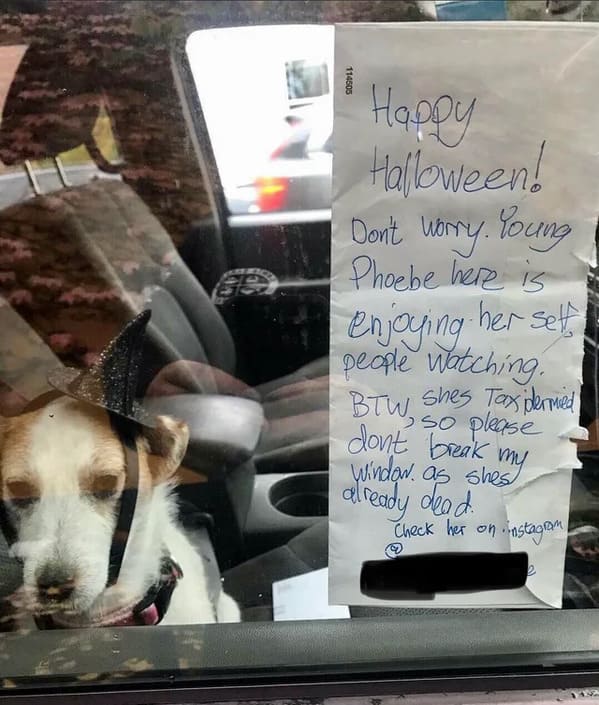 114505
Happy
Halloween!
Don't worry. Young
Phoebe here is
enjoying her self,
people watching.
BTW shes Taxidermied
, so please
dont break my
window. as shes
already dead.
Check her on instagram
@
e